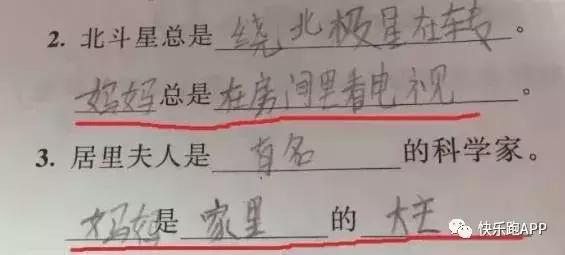 2. 北斗星总是 绕北极星在转。
妈妈总是在房间里看电视。
3. 居里夫人是 有名 的科学家。
妈妈是 家里 的 大王
快乐跑APP